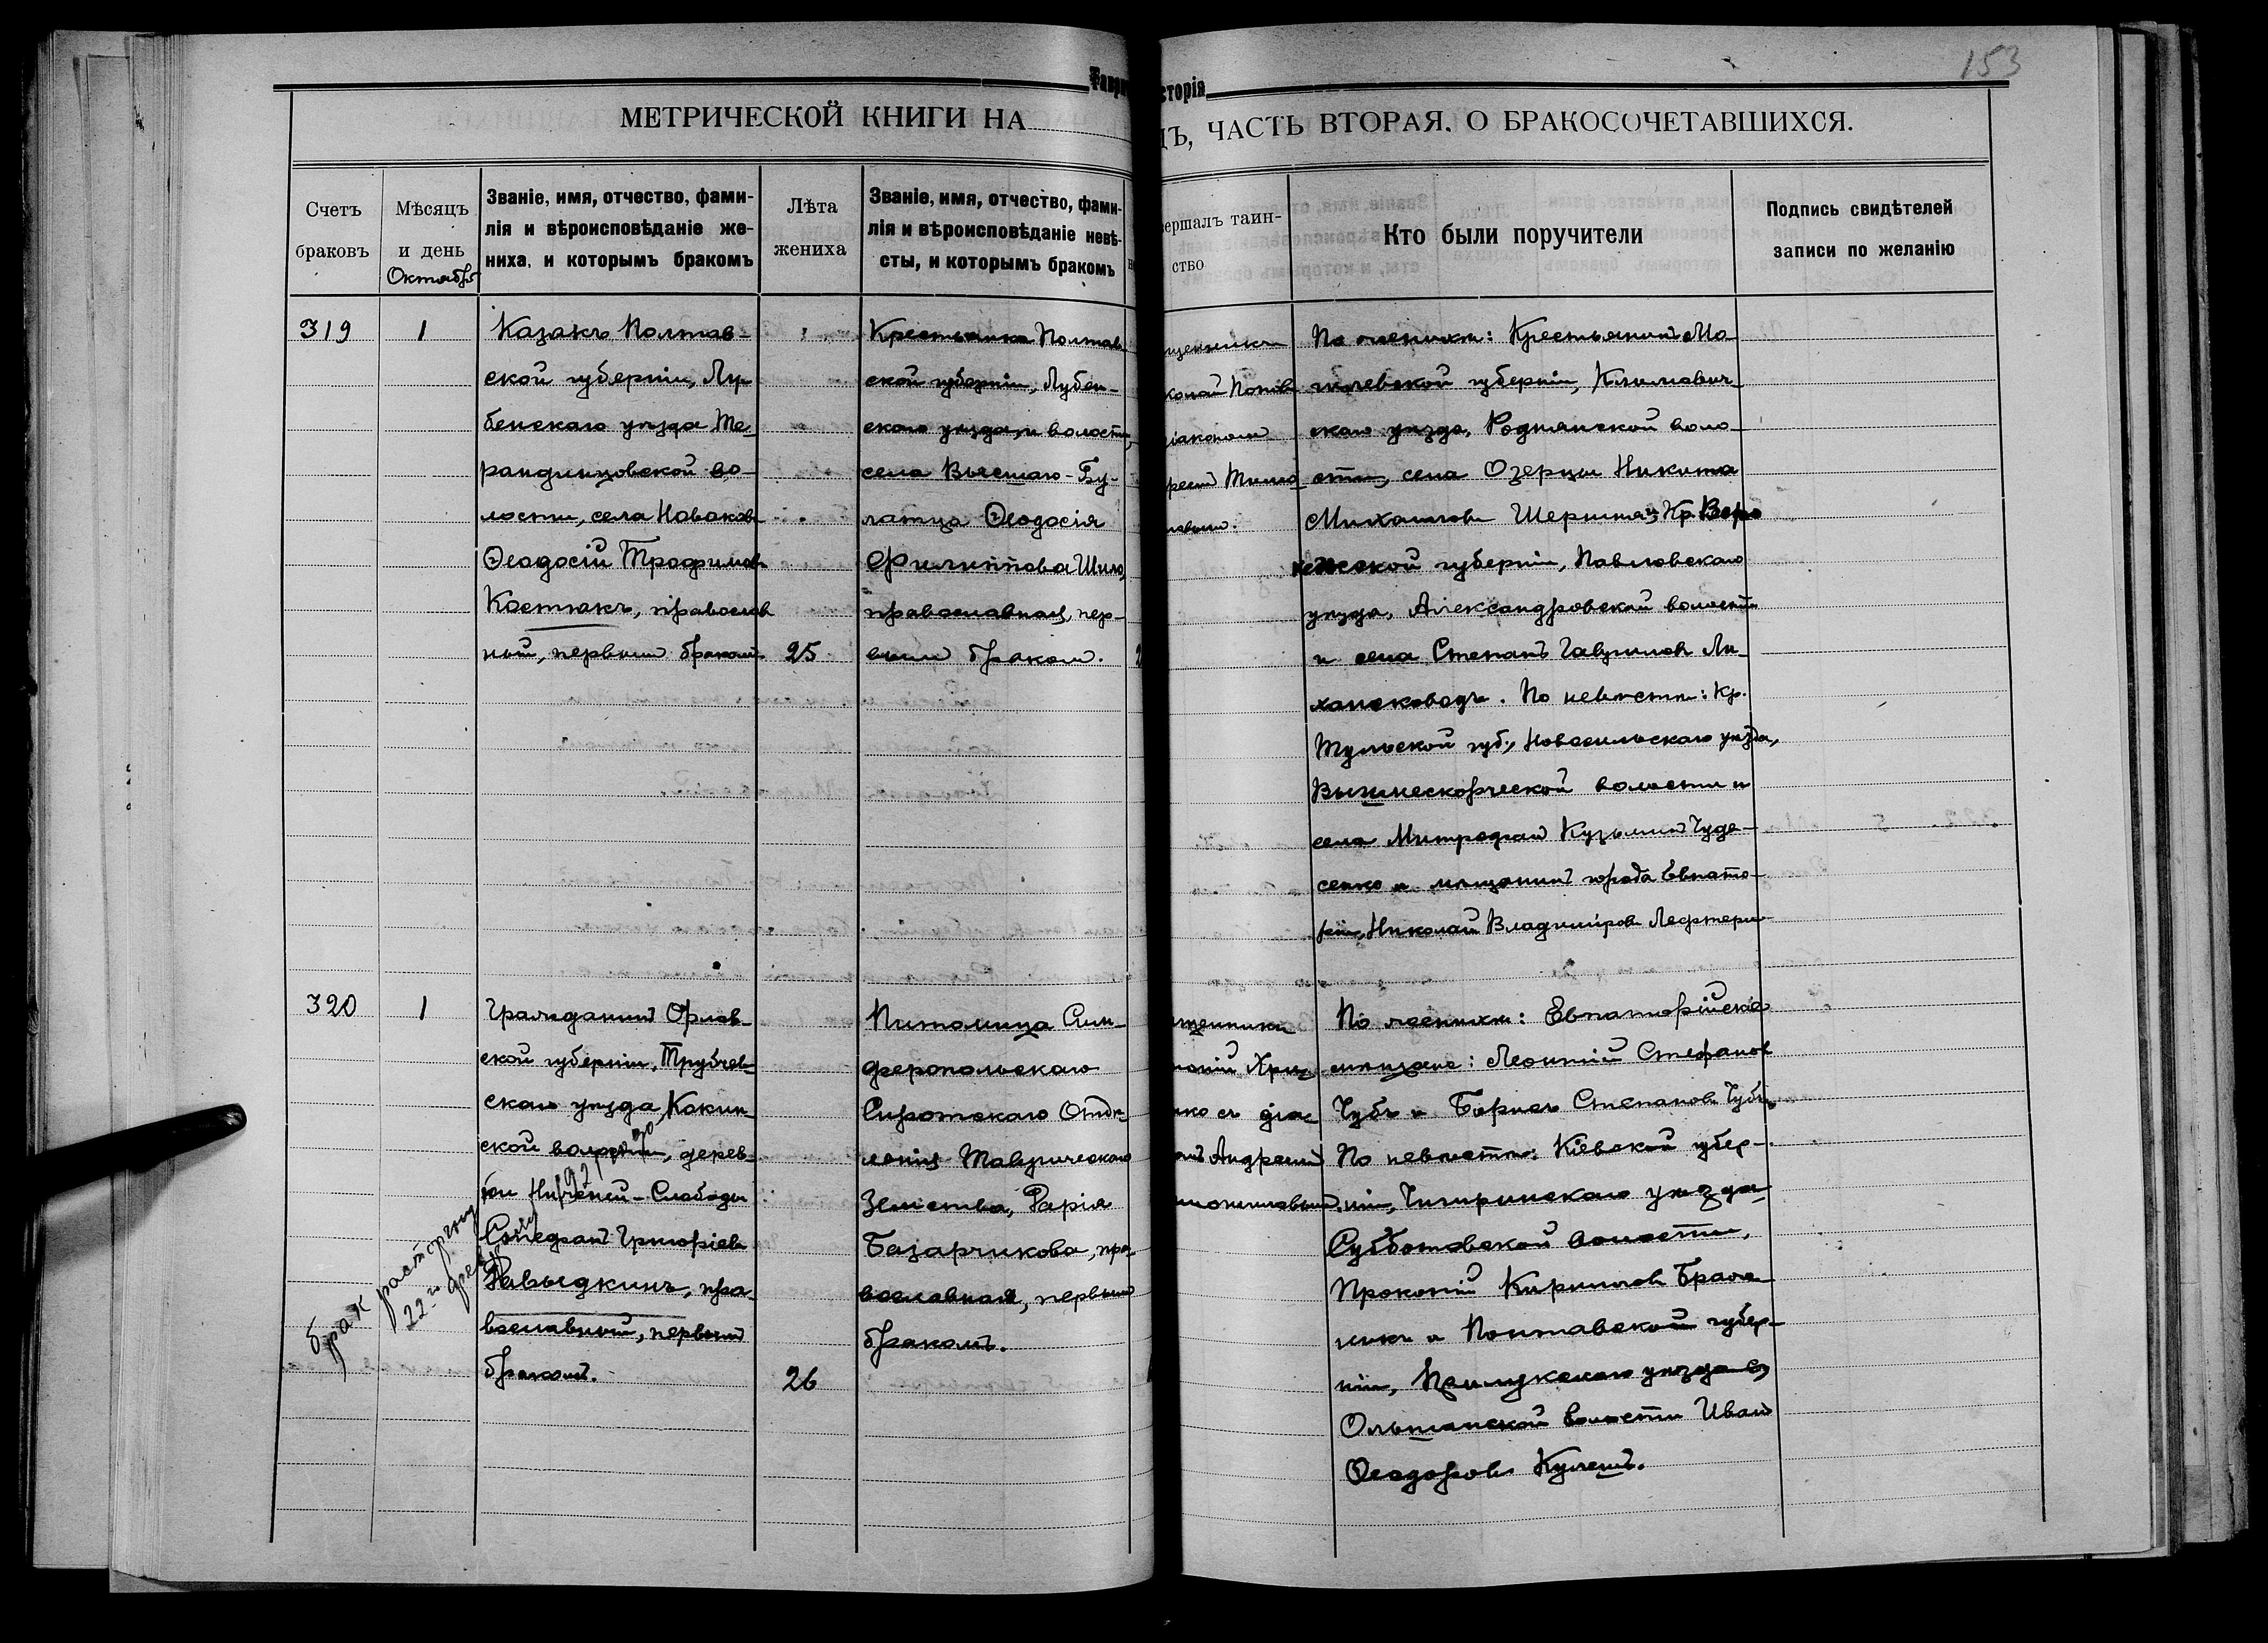 153
Таври
сторія
МЕТРИЧЕСКОЙ КНИГИ НА
Ъ, ЧАСТЬ ВТОРАЯ. О БРАКОСОЧЕТАВШИХСЯ.
Счетъ браковъ
Мѣсяцъ и день
Октябрь
Званіе, имя, отчество, фами-
лія и вѣроисповѣданіе же-
ниха, и которымъ бракомъ
Лѣта жениха
Званіе, имя, отчество, фами-
лія и вѣроисповѣданіе невѣ-
сты, и которымъ бракомъ
вершалъ таин-
ство
Кто были поручители
Подпись свидѣтелей
записи по желанію
319
1
Казакъ Полтав-
ской губерніи, Лу-
бенскаго уѣзда
рандинцовской во-
лости, села Новаков
Ѳеодосій Трофимовъ
Костюкъ, православ
ный, первымъ бракомъ.
25
Крестьянка Полтав-
ской губерніи, Лубен-
скаго уѣзда и волости,
села Высшаго-Бу-
латца Ѳеодосія
Филиппова Шило,
православная, пер-
вымъ бракомъ.
щенникъ
колай Попов
діакономъ
реем Тимо
По женихѣ: Крестьянинъ Мо-
гилевской губерніи, Климович-
скаго уѣзда, Роднянской воло-
сти, села Озерцы Никита
Михаиловъ и Кр. Воро
нежской губерніи, Павловскаго
уѣзда, Александровской волости
и села Степанъ Гавриловъ Ли-
. По невѣстѣ: Кр.
Тульской губ., Новосильскаго уѣзда,
волости и
села Митрофанъ Кузьминъ Чуде-
сенко и мѣщанинъ города Евпато-
ріи, Николай Владиміровъ
320
1
Гражданинъ Орлов-
ской губерніи, Трубчев-
скаго уѣзда, Кокин-
ской волости, дерев-
ни Нижней-Слободы
Григоріевъ
Давыдкинъ, пра-
вославный, первымъ
бракомъ.
26
брак расторгнут
22-го 1921 года
Питомица Сим-
феропольскаго
Сиротскаго Отдѣ-
ленія Таврическаго
Земства, Дарія
Базарчикова, пра-
вославная, первымъ
бракомъ.
щенники
ній Хри
нко съ діа-
Андреемъ
По женихѣ: Евпаторійскіе
мѣщане: Леонтій Стефановъ
Чубъ и Борисъ Степановъ Чубъ.
По невѣстѣ: Кіевской губер-
ніи, Чигиринскаго уѣзда
Субботовской волости,
Прокопій Кириловъ Браж-
никъ и Полтавской губер-
ніи, Прилукскаго уѣзда
Ольшанской волости Иванъ
Ѳеодоровъ Кулешъ.